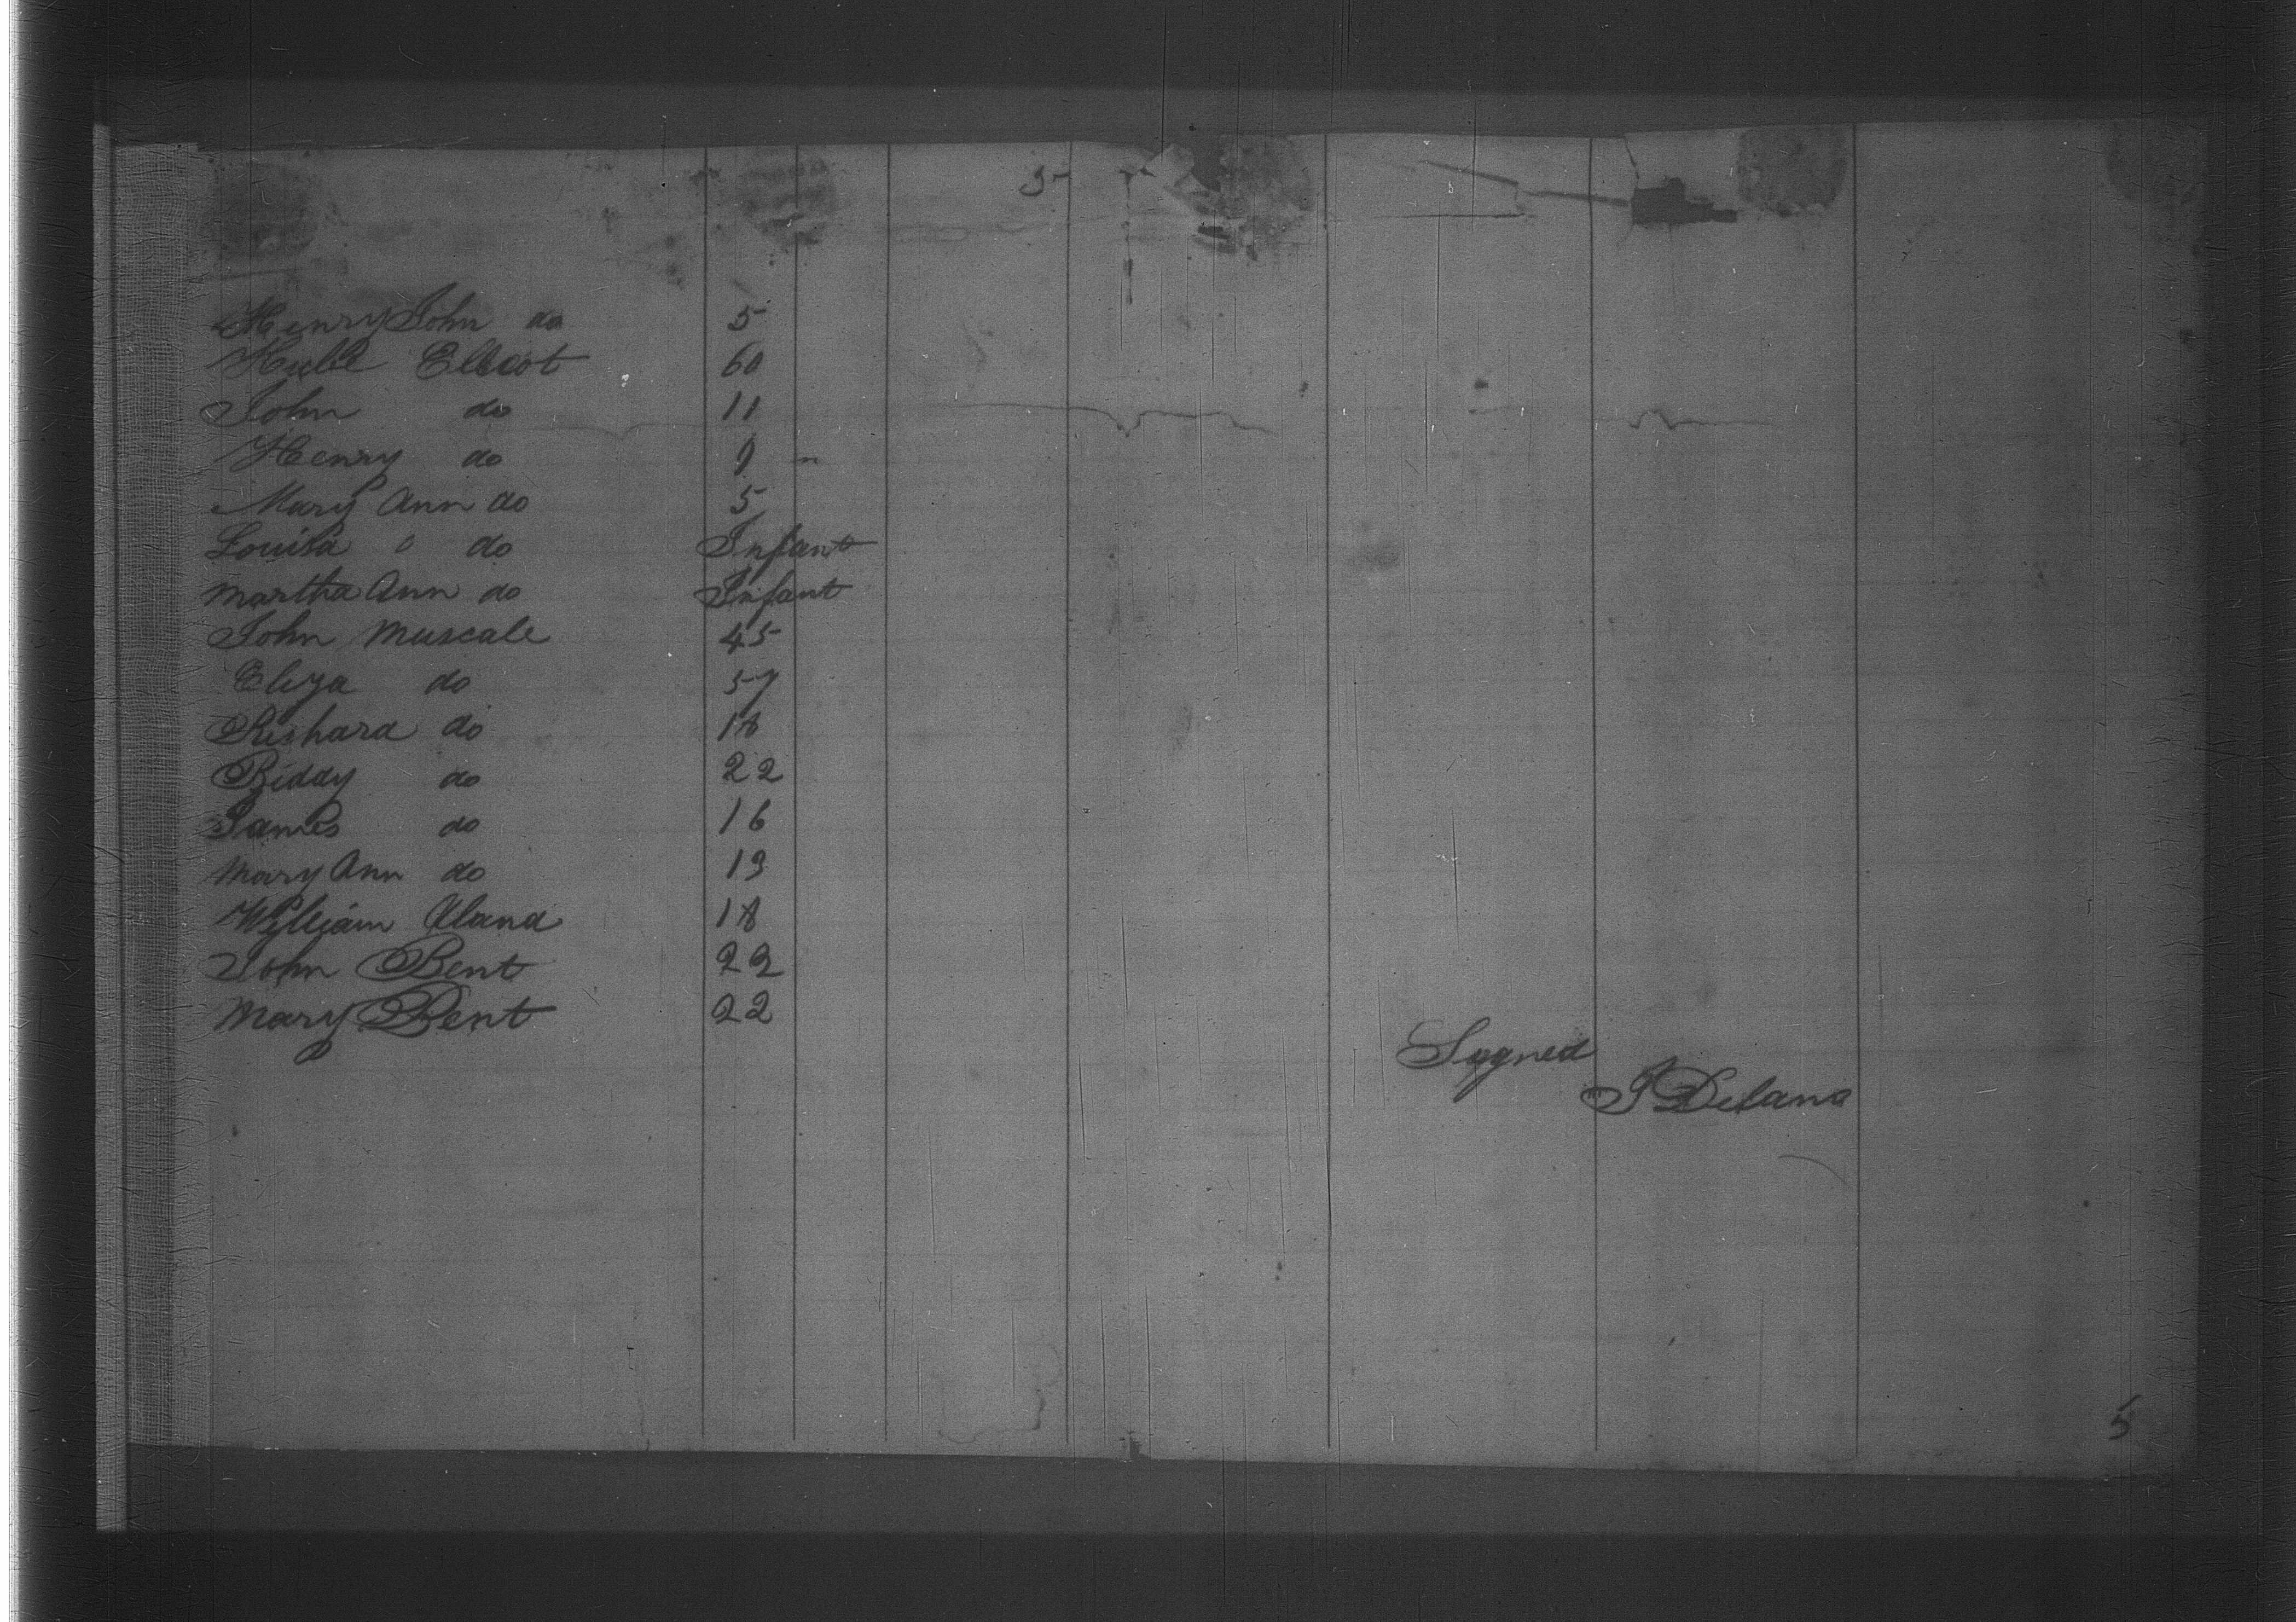 5
Henry John do 5
Elliot 60
John do 11
Henry do 9 "
Mary Ann do 5
Louisa do Infant
Martha Ann do Infant
John Muscale 45
Eliza do 57
Richard do 18
Biddy do 22
James do 16
Mary Ann do 13
William Aland 18
John Bent 22
Mary Bent 22
Sygned
J Delano
5